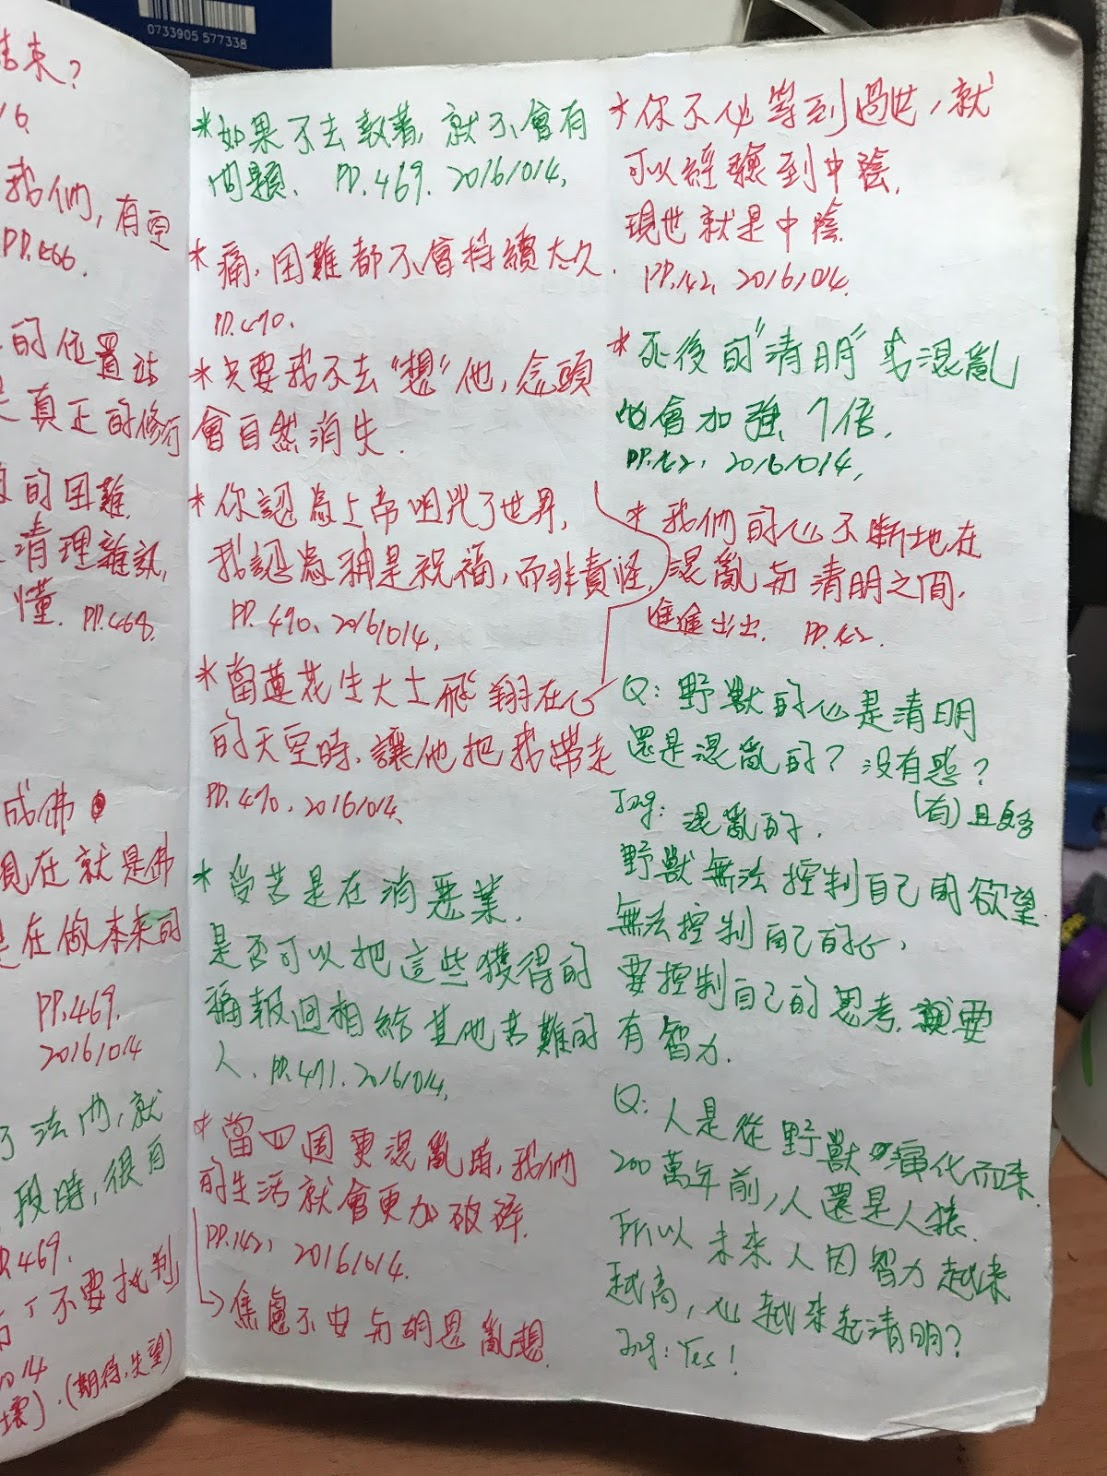 0733905 577338
結束？
16.
我們，有更
PP.466.
的位置站
是真正的修行
的困難.
清理雜訊，
懂. PP.468.
成佛
現在就是佛
是在做本來的
PP.469.
20161014
了法門，就
段時，很有
469.
了不要批判
1014
壞).(期待,失望)
*如果不去執著，就不會有
問題. PP.469. 20161014.
*痛，困難都不會持續太久.
PP.470.
*只要我不去"想"他，念頭
會自然消失.
*你認為上帝咀咒了世界，
我認為神是祝福，而非責怪.
PP.470、20161014.
*當蓮花生大士飛翔在心
的天空時，讓他把我帶走
PP.470. 20161014.
*受苦是在消惡業.
是否可以把這些獲得的
福報回相給其他苦難的
人. PP.471. 20161014.
*當四個更混亂時，我們
的生活就會更加破碎.
PP.142, 20161014.
焦慮不安與胡思亂想.
*你不必等到過世，就
可以經驗到中陰.
現世就是中陰.
PP.142, 20161014.
*死後的"清明"或混亂
也會加強7倍.
PP.142, 20161014.
*我們的心不斷地在
混亂與清明之間.
進進出出. PP.142.
Q：野獸的心是清明
還是混亂的？沒有惑？
Jng：混亂的. (有)且更多
野獸無法控制自己的欲望.
無法控制自己的心，
要控制自己的思考，就要
有智力.
Q：人是從野獸演化而來
200萬年前，人還是人猿.
所以未來人因智力越來
越高，心越來越清明？
Jng：Yes！